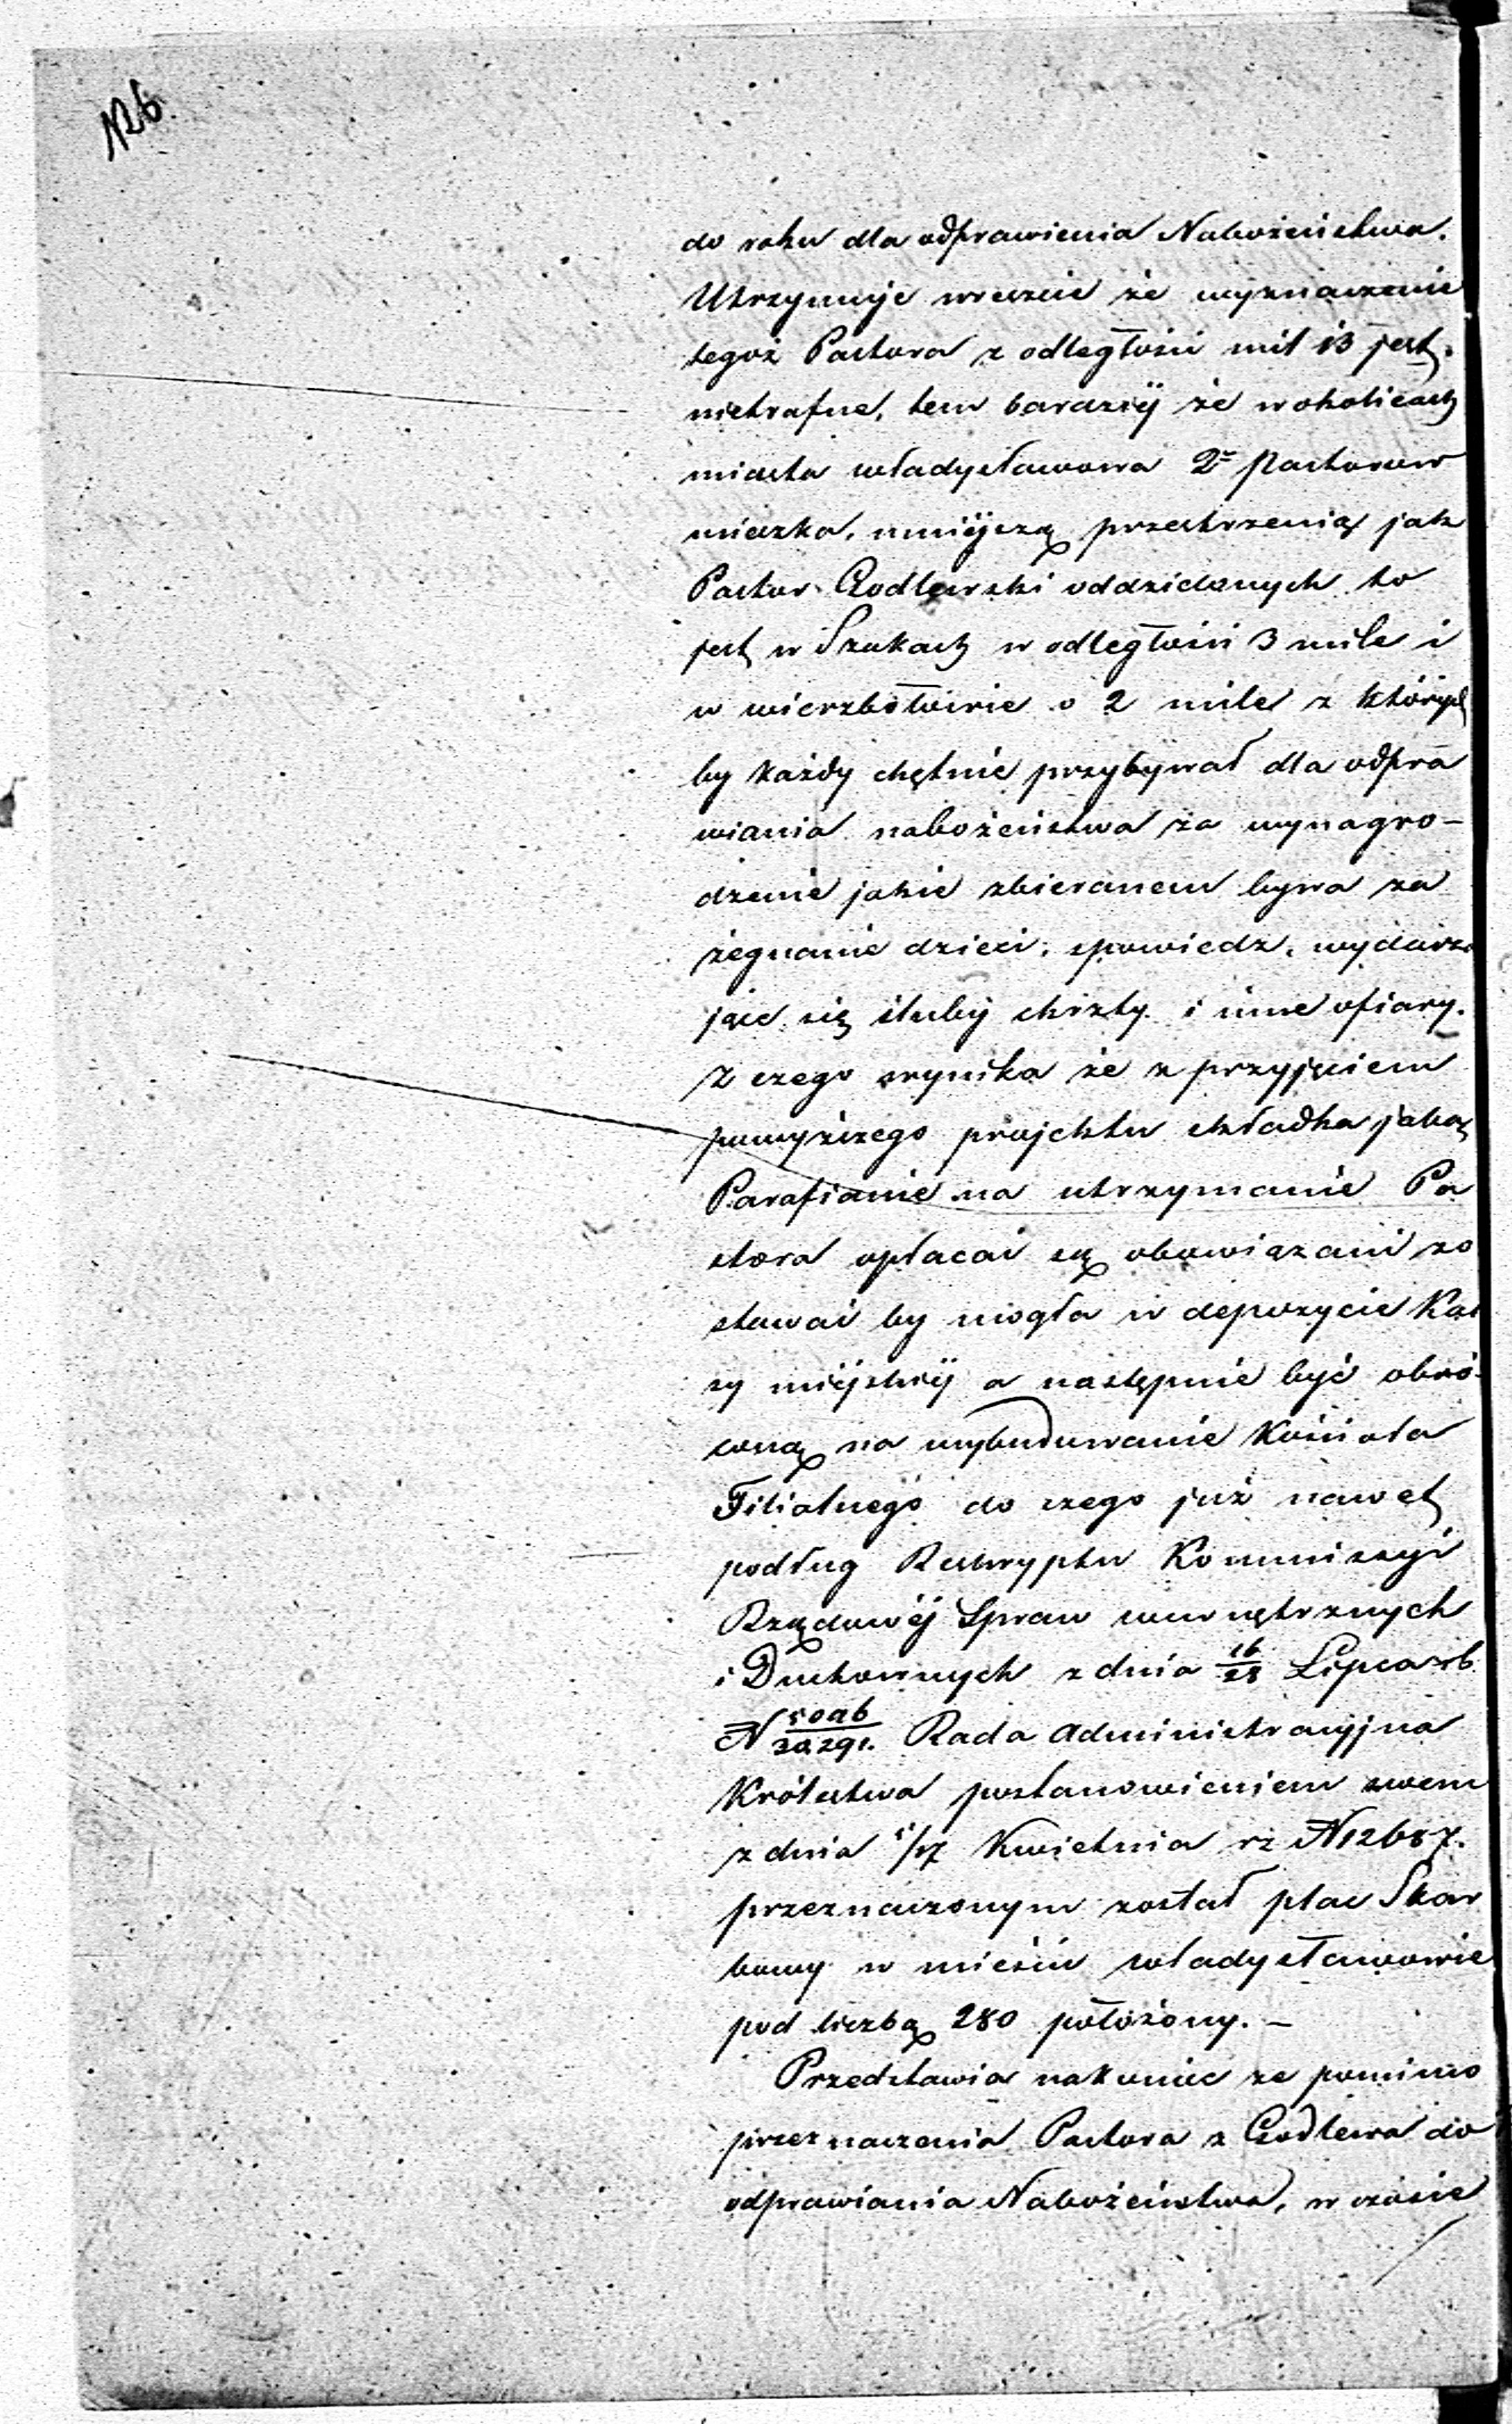 126.
do roku dla odprawienia Nabożeństwa.
Utrzymuje wreszcie że wyznaczenie
tegoż Pastora z odległości mil 13 jest
nietrafne, tem bardziéj że w okolicach
miasta władysławowa 2ᶜʰ Pastorow
mieszka, mniéjszą przestrzenią jak
Pastor Godlewski oddzielonych to
jest w Szakach w odległości 3 mile i
w wierzbołowie o 2 mile z których
by każdy chętnie przybywał dla odpra
wiania nabożeństwa za wynagro-
dzenie jakie zbieranem bywa za
żegnanie dzieci, spowiedz, wydarza
jące się śluby chrzty i inne ofiary.
Z czego wynika że z przyjęciem
powyższego projektu składka jaką
Parafianie na utrzymanie Pa
stora opłacać są obowiązani zo
stawać by mogła w depozycie Kas
sy miéjskiéj a następnie być obró-
coną na wybudowanie Kościoła
Filialnego do czego już nawet
podług Reskryptu Kommissyi
Rządowéj Spraw wewnętrznych
i Duchownych z dnia 16/28 Lipca rb
N 5096/32291. Rada Administracyjna
Królestwa postanowieniem swem
z dnia 5/17 Kwietnia rz N12687.
przeznaczonym został plac Skar
bowy w mieście władysławowie
pod liczbą 280 położony. –
Przedstawia nakoniec ze pomimo
przeznaczenia Pastora z Godlewa do
odprawiania Nabożeństwa, w czasie